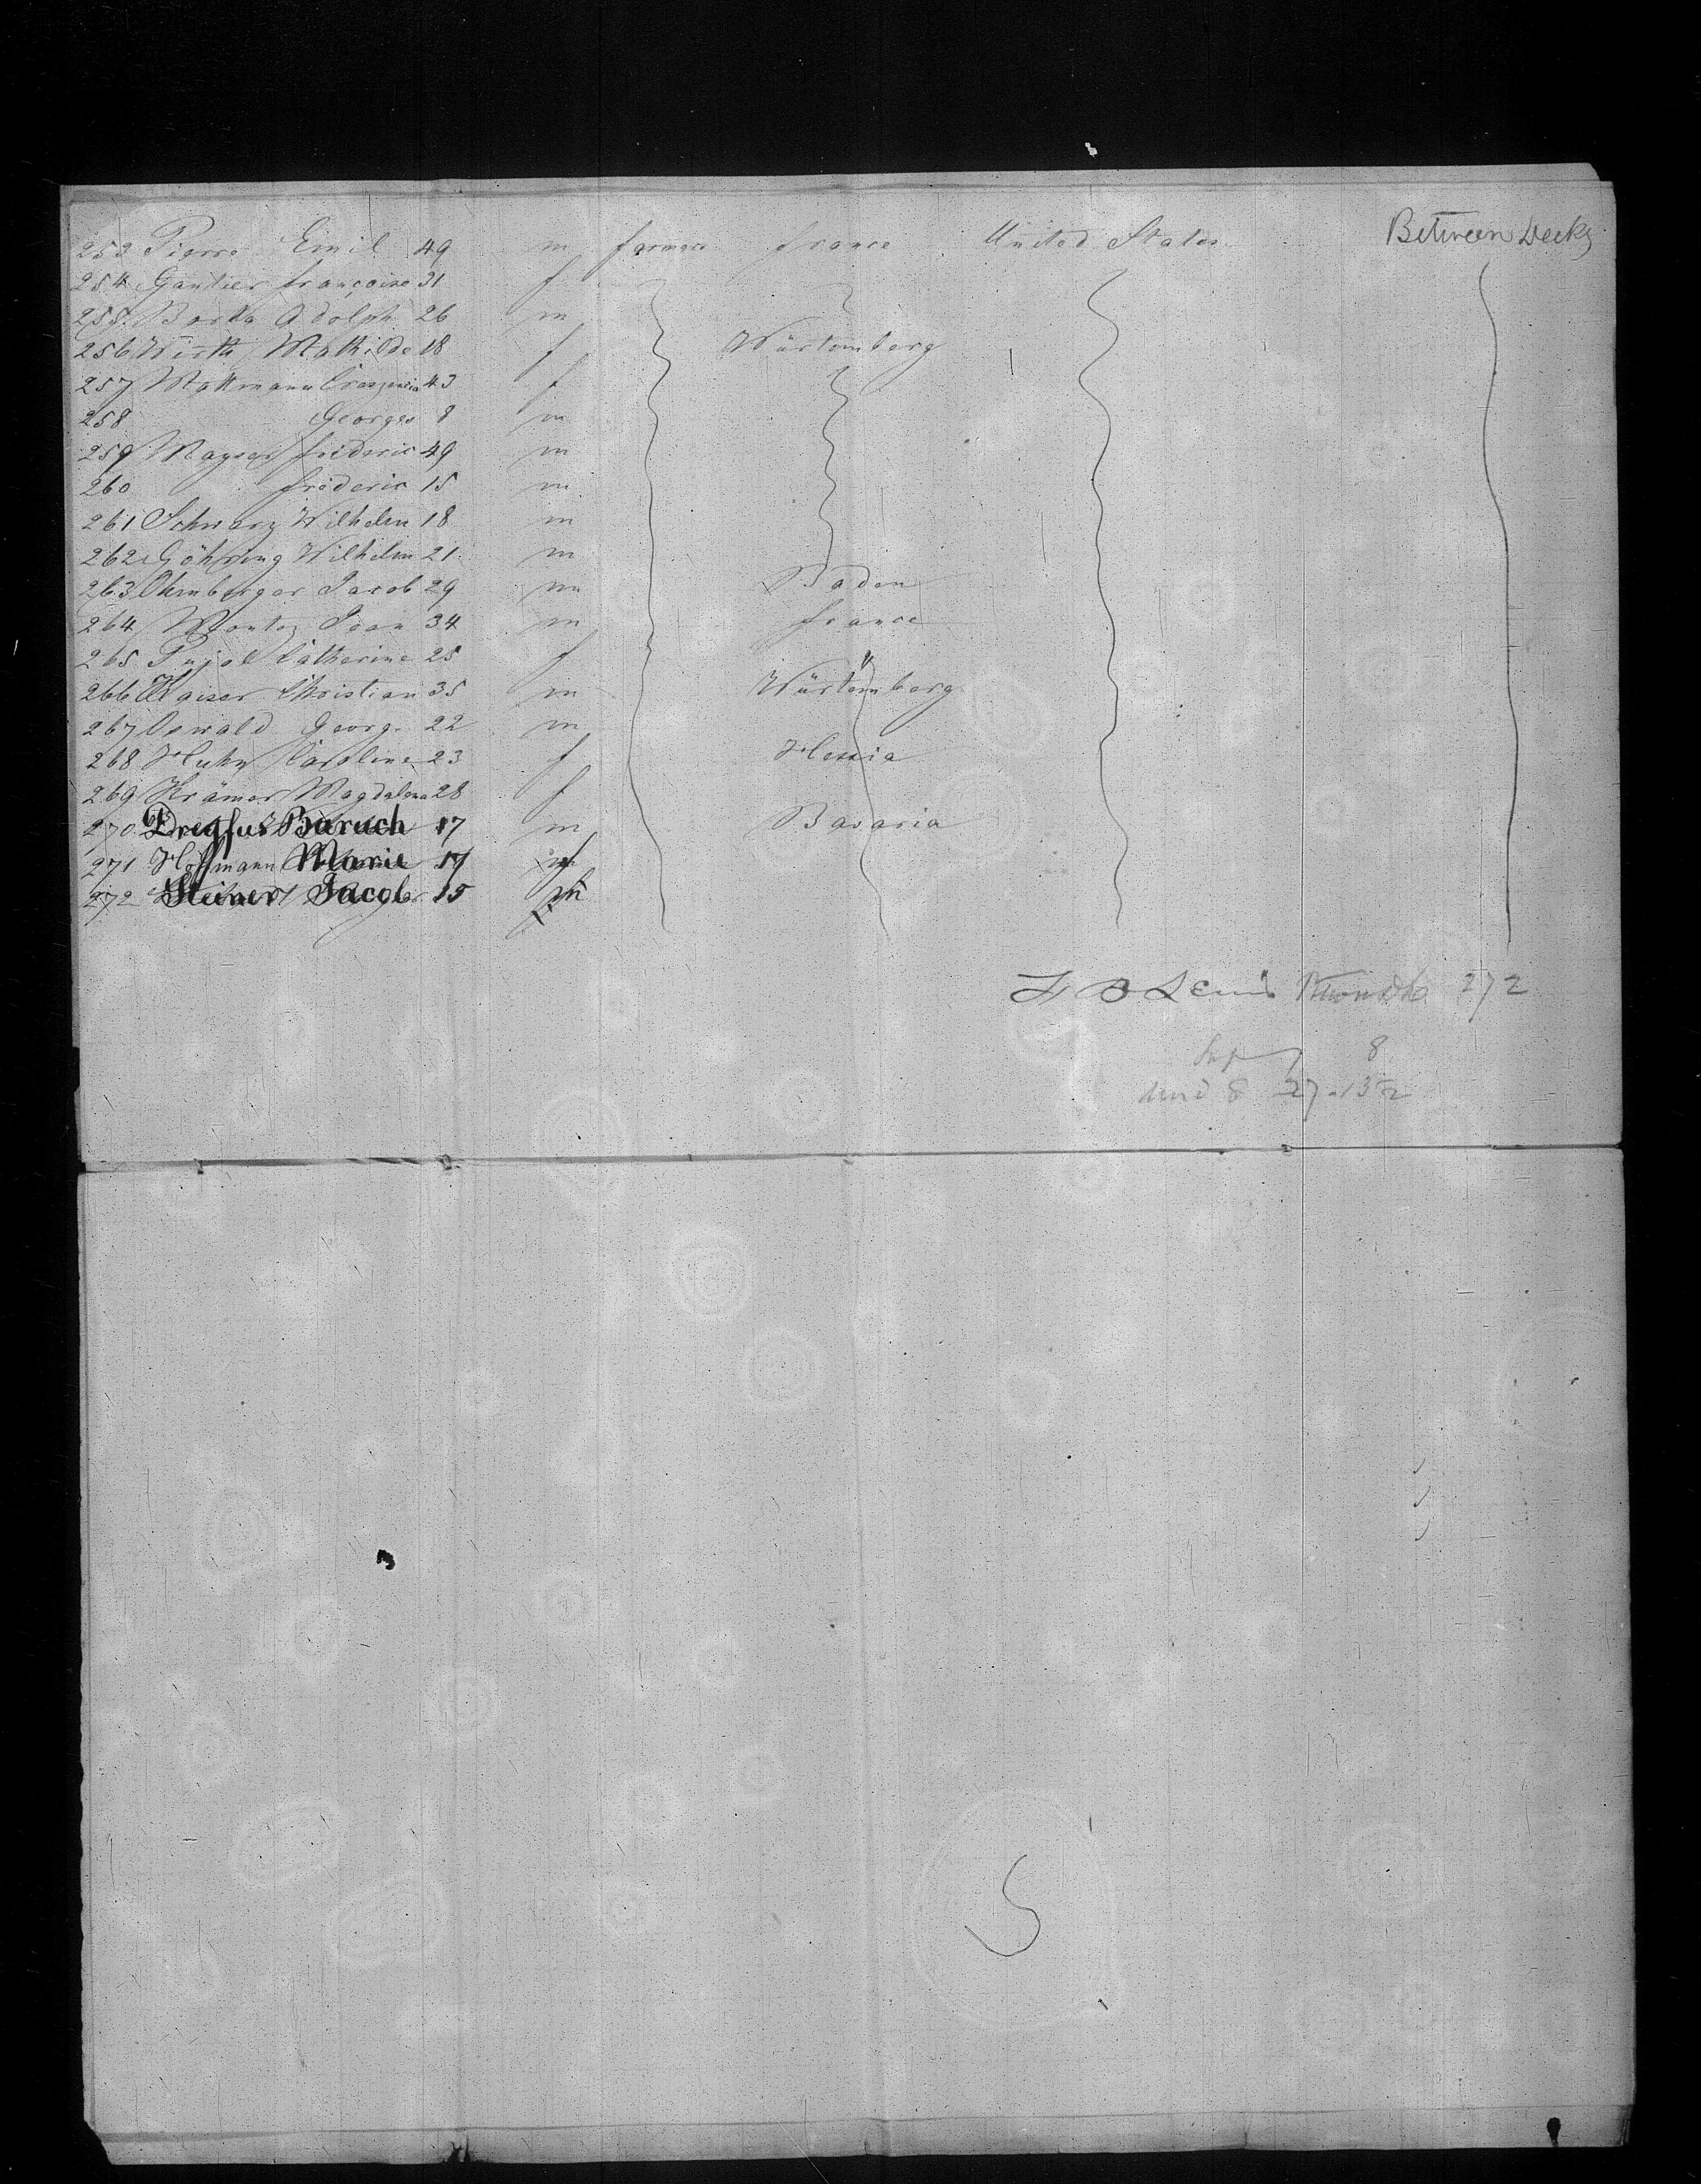 253 Pierre Emil 49 m farmers france United States Between Decks
254 Gautier françoise 31 f
255 Borka Adolph 26 m
256 Wirth Mathilde 18 f Würtemberg
257 Mattmann Creszensia 43 f
258 Georges 8 m
259 Mayser frederic 49 m
260 frederic 15 m
261 Schwarz Wilhelm 18 m
262 Göhring Wilhelm 21 m
263 Ohrnberger Jacob 29 m Baden
264 Montoz Jean 34 m france
265 Pujol Catherine 25 f "
266 Kaiser Christian 35 m Würtemberg
267 Oswald Georg 22 m
268 Huhn Caroline 23 f Hessia
269 Krämer Magdalena 28 f
270 Dreyfus Baruch 17 m Bavaria
271 Hoffmann Marie 17 f
272 Steiner Jacob 15 m
F B Lewis 272
8
27-1352
5